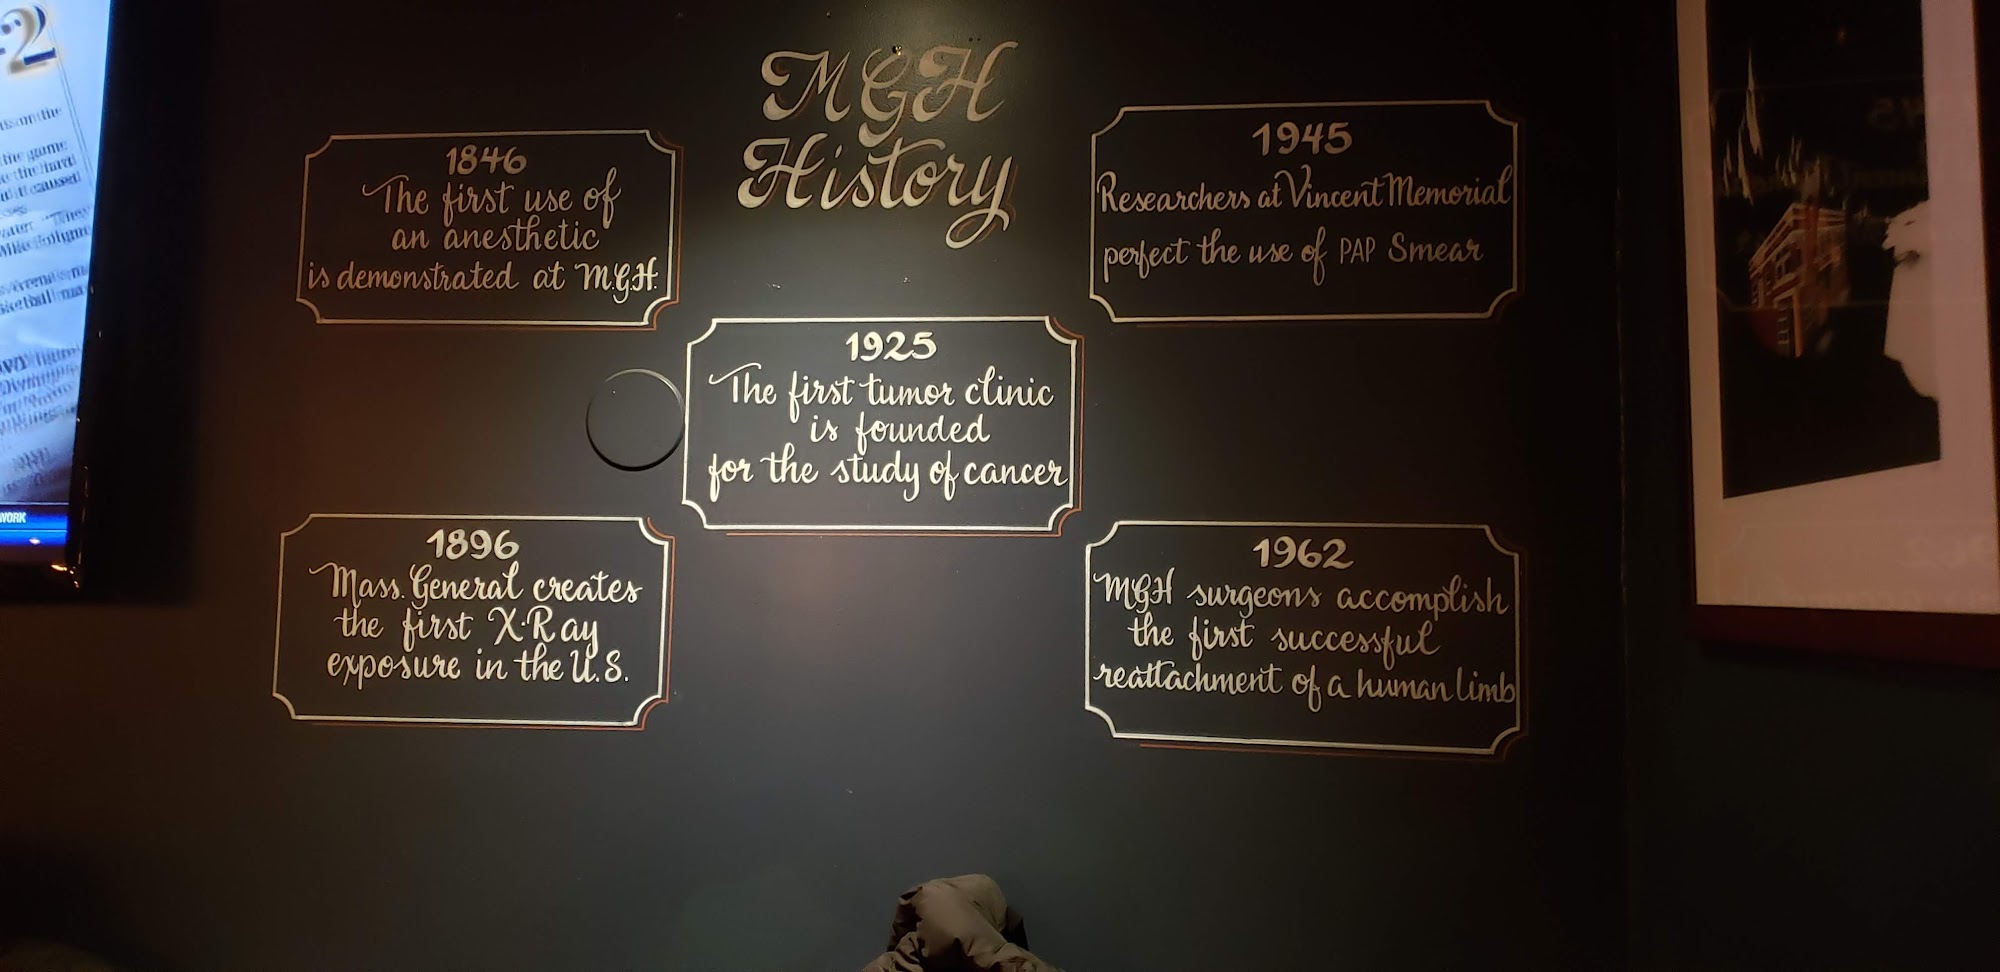 MGH
History
1846
The first use of
an anesthetic
is demonstrated at M.G.H.
1945
Researchers at Vincent Memorial
perfect the use of PAP Smear
1925
The first tumor clinic
is founded
for the study of cancer
1896
Mass. General creates
the first X-Ray
exposure in the U.S.
1962
MGH surgeons accomplish
the first successful
reattachment of a human limb
2
the game
caused
WORK